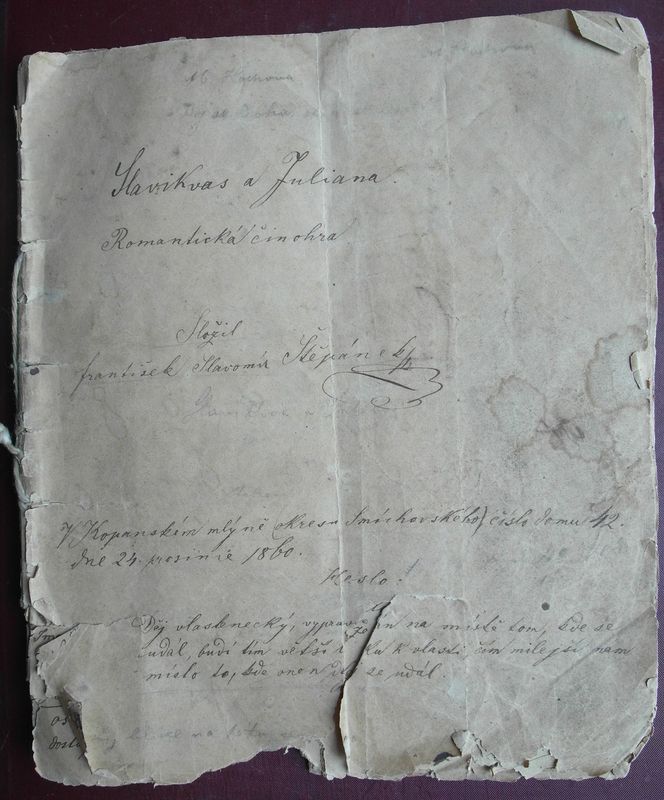 M. Kochova
Slavikvas a Juliana.
Romantická činohra
Složil
František Slavomír Štěpánek
V Kopanském mlýně okresu Smíchovského) číslo domu 42.
dne 24. prosince 1860.
Heslo:
Děj vlastenecký, vypravován na místě tom, kde se
udál, budí tím větší lásku k vlasti čím milejší nám
místo to, kde onen děj se udál.